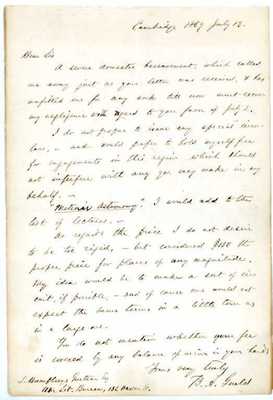 Cambridge, 1869 July 12.
Dear Sir
A severe domestic bereavement, which called
me away just as your letter was received, & has
unfitted me for any work till now must excuse
my negligence with regard to your favor of July 2.
I do not propose to issue any special circu-
lars, – and would prefer to hold myself free
for engagements in this region which should
not interfere with any you may make in my
behalf. –
"Meteoric Astronomy" I would add to the
list of lectures. –
As regards the price I do not desire
to be too rigid, – but considered $100 the
proper price for places of any magnitude.
My idea would be to make a sort of cir-
cuit, if possible, – and of course one would not
expect the same terms in a little town as
in a large one.
You do not mention whether your fee
is covered by any balance of mine in your hands
Yours very truly
B. A. Gould
J. Humphreys
Am. Lit. Bureau, 132 Nassau St.